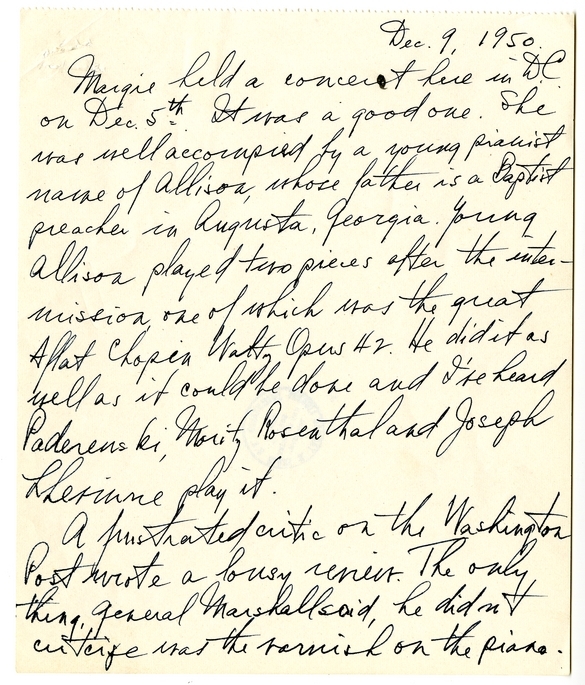 Dec. 9, 1950.
Margie held a concert here in D.C.
on Dec. 5th. It was a good one. She
was well accompied by a young pianist
name of Allison, whose father is a Baptist
preacher in Augusta, Georgia. Young
Allison played two pieces after the inter-
mission, one of which was the great
Aflat Chopin Waltz, Opus 42. He did it as
well as it could be done and I've heard
Paderewski, Moritz Rosenthal and Joseph
Lhevinne play it.
A frustrated critic on the Washington
Post wrote a lousy review. The only
thing, General Marshall said, he didn't
criticize was the varnish on the piano.